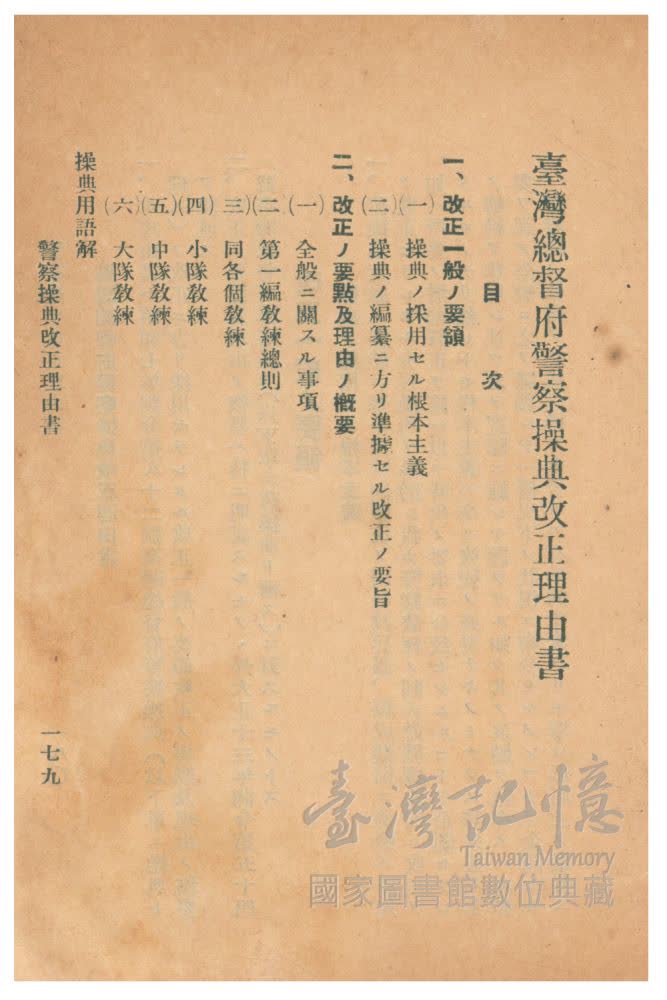 臺灣總督府警察操典改正理由書
目次
一、改正一般ノ要領
(一)操典ノ採用セル根本主義
(二)操典ノ編纂ニ方リ準據セル改正ノ要旨
二、改正ノ要點及理由ノ槪要
(一)全般ニ關スル事項
(二)第一編敎練總則
(三)同各個敎練
(四)小隊敎練
(五)中隊敎練
(六)大隊敎練
操典用語解
警察操典改正理由書
一七九
臺灣記憶
Taiwan Memory
國家圖書館數位典藏